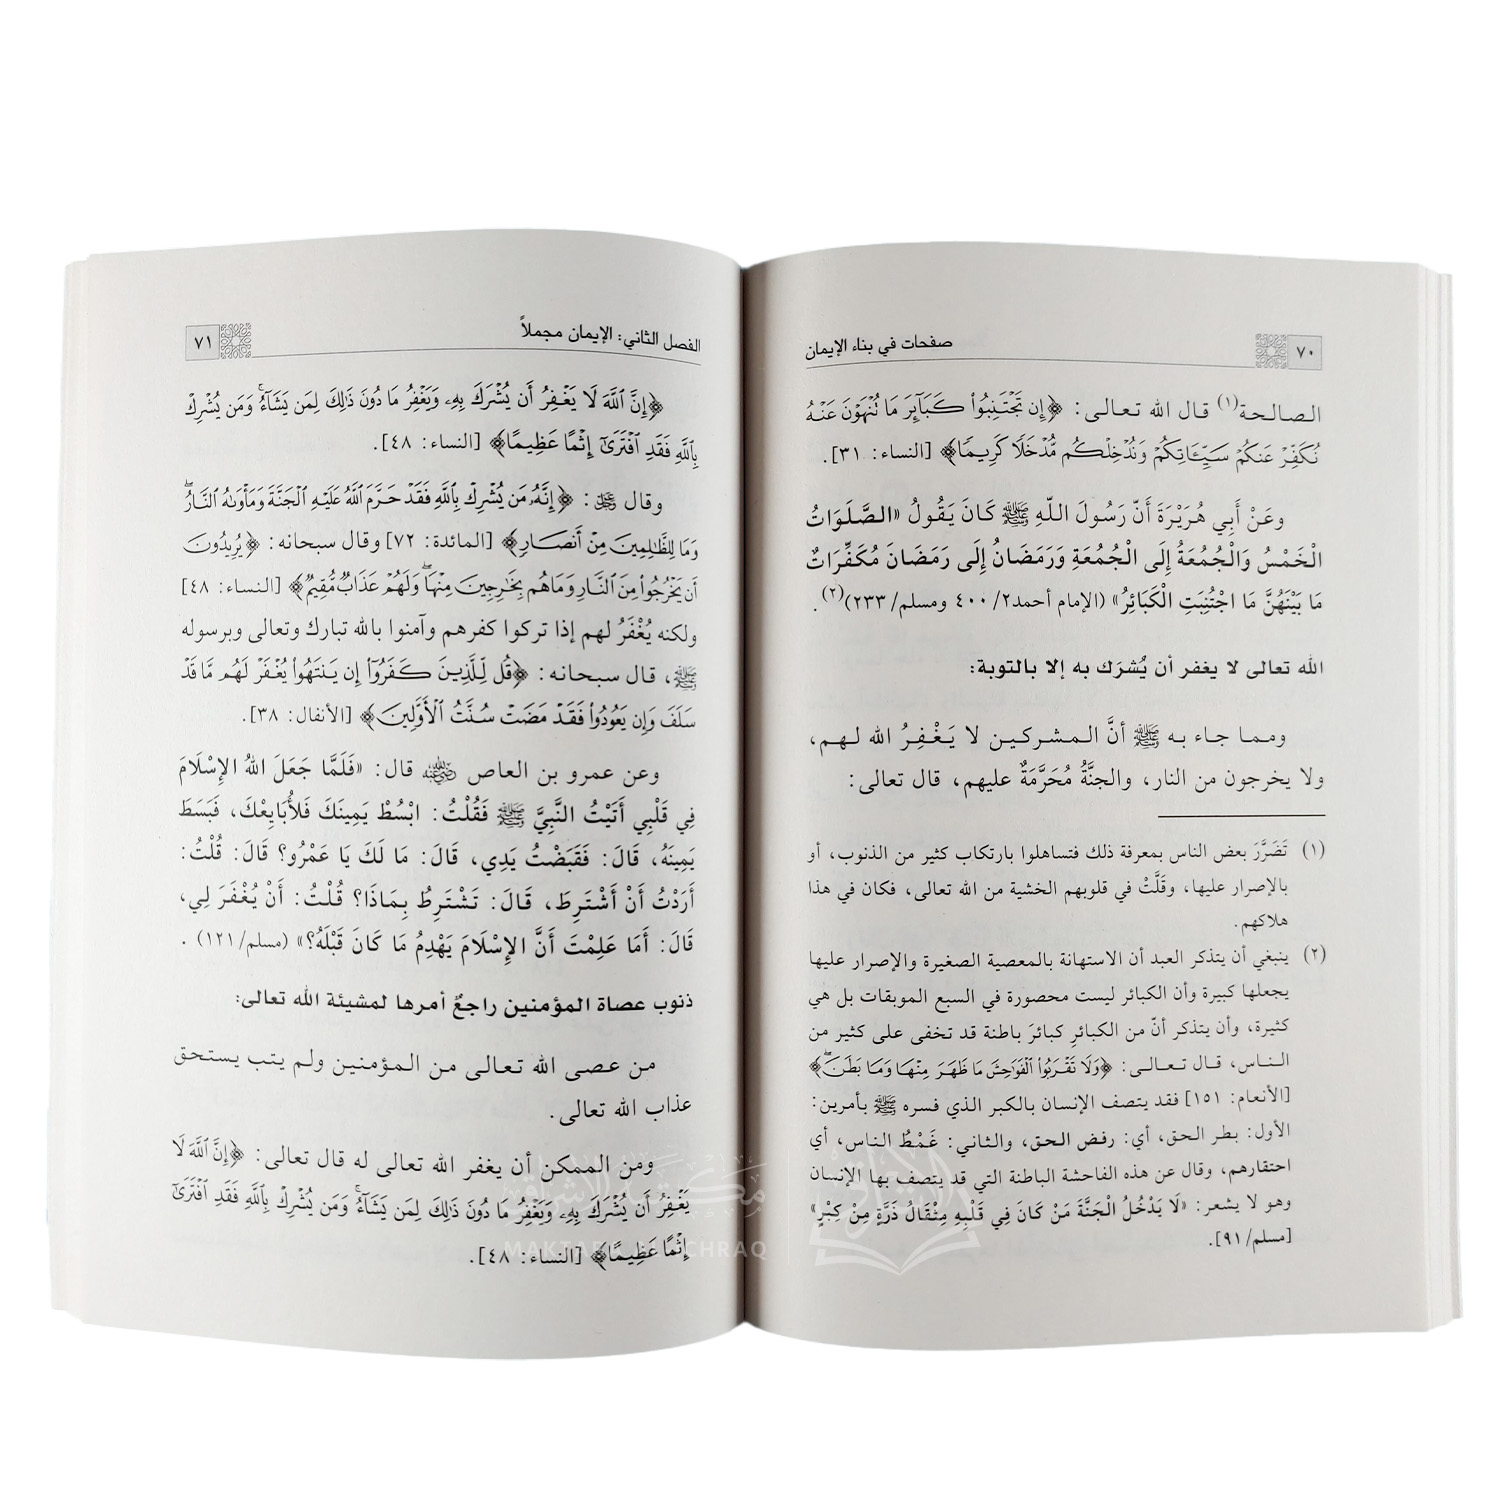 ٧٠ صفحات في بناء الإيمان
الصالحة(١) قال الله تعالى: ﴿إِن تَجْتَنِبُواْ كَبَآئِرَ مَا تُنْهَوْنَ عَنْهُ
نُكَفِّرْ عَنكُمْ سَيِّـَٔاتِكُمْ وَنُدْخِلْكُم مُّدْخَلًا كَرِيمًا﴾ [النساء: ٣١].
وعَنْ أَبِي هُرَيْرَةَ أَنّ رَسُولَ اللّهِ ﷺ كَانَ يَقُولُ «الصَّلَوَاتُ
الْخَمْسُ وَالْجُمُعَةُ إِلَى الْجُمُعَةِ وَرَمَضَانُ إِلَى رَمَضَانَ مُكَفِّرَاتٌ
مَا بَيْنَهُنَّ مَا اجْتُنِبَتِ الْكَبَائِرُ» (الإمام أحمد٢/ ٤٠٠ ومسلم/ ٢٣٣)(٢).
الله تعالى لا يغفر أن يُشرَك به إلا بالتوبة:
ومما جاء به ﷺ أنَّ المشركين لا يَغْفِرُ الله لهم،
ولا يخرجون من النار، والجنَّةُ مُحَرَّمَةٌ عليهم، قال تعالى:
(١) تَضَرَّرَ بعض الناس بمعرفة ذلك فتساهلوا بارتكاب كثير من الذنوب، أو
بالإصرار عليها، وقَلَّتْ في قلوبهم الخشية من الله تعالى، فكان في هذا
هلاكهم.
(٢) ينبغي أن يتذكر العبد أن الاستهانة بالمعصية الصغيرة والإصرار عليها
يجعلها كبيرة وأن الكبائر ليست محصورة في السبع الموبقات بل هي
كثيرة، وأن يتذكر أنّ من الكبائر كبائرَ باطنة قد تخفى على كثير من
الناس، قال تعالى: ﴿وَلَا تَقْرَبُواْ ٱلْفَوَٰحِشَ مَا ظَهَرَ مِنْهَا وَمَا بَطَنَ﴾
[الأنعام: ١٥١] فقد يتصف الإنسان بالكبر الذي فسره ﷺ بأمرين:
الأول: بطر الحق، أي: رفض الحق، والثاني: غَمْطُ الناس، أي
احتقارهم، وقال عن هذه الفاحشة الباطنة التي قد يتصف بها الإنسان
وهو لا يشعر: «لَا يَدْخُلُ الْجَنَّةَ مَنْ كَانَ فِي قَلْبِهِ مِثْقَالُ ذَرَّةٍ مِنْ كِبْرٍ»
[مسلم/ ٩١].
الفصل الثاني: الإيمان مجملاً ٧١
﴿إِنَّ ٱللَّهَ لَا يَغْفِرُ أَن يُشْرَكَ بِهِۦ وَيَغْفِرُ مَا دُونَ ذَٰلِكَ لِمَن يَشَآءُ وَمَن يُشْرِكْ
بِٱللَّهِ فَقَدِ ٱفْتَرَىٰٓ إِثْمًا عَظِيمًا﴾ [النساء: ٤٨].
وقال ﷻ: ﴿إِنَّهُۥ مَن يُشْرِكْ بِٱللَّهِ فَقَدْ حَرَّمَ ٱللَّهُ عَلَيْهِ ٱلْجَنَّةَ وَمَأْوَىٰهُ ٱلنَّارُ
وَمَا لِلظَّٰلِمِينَ مِنْ أَنصَارٍ﴾ [المائدة: ٧٢] وقال سبحانه: ﴿يُرِيدُونَ
أَن يَخْرُجُواْ مِنَ ٱلنَّارِ وَمَا هُم بِخَٰرِجِينَ مِنْهَا وَلَهُمْ عَذَابٌ مُّقِيمٌ﴾ [النساء: ٤٨]
ولكنه يُغْفَرُ لهم إذا تركوا كفرهم وآمنوا بالله تبارك وتعالى وبرسوله
ﷺ، قال سبحانه: ﴿قُل لِّلَّذِينَ كَفَرُوٓاْ إِن يَنتَهُواْ يُغْفَرْ لَهُم مَّا قَدْ
سَلَفَ وَإِن يَعُودُواْ فَقَدْ مَضَتْ سُنَّتُ ٱلْأَوَّلِينَ﴾ [الأنفال: ٣٨].
وعن عمرو بن العاص رضي الله عنه قال: «فَلَمَّا جَعَلَ اللهُ الإِسْلَامَ
فِي قَلْبِي أَتَيْتُ النَّبِيَّ ﷺ فَقُلْتُ: ابْسُطْ يَمِينَكَ فَلأُبَايِعْكَ، فَبَسَطَ
يَمِينَهُ، قَالَ: فَقَبَضْتُ يَدِي، قَالَ: مَا لَكَ يَا عَمْرُو؟ قَالَ: قُلْتُ:
أَرَدْتُ أَنْ أَشْتَرِطَ، قَالَ: تَشْتَرِطُ بِمَاذَا؟ قُلْتُ: أَنْ يُغْفَرَ لِي،
قَالَ: أَمَا عَلِمْتَ أَنَّ الإِسْلَامَ يَهْدِمُ مَا كَانَ قَبْلَهُ؟» (مسلم/ ١٢١).
ذنوب عصاة المؤمنين راجعٌ أمرها لمشيئة الله تعالى:
من عصى الله تعالى من المؤمنين ولم يتب يستحق
عذاب الله تعالى.
ومن الممكن أن يغفر الله تعالى له قال تعالى: ﴿إِنَّ ٱللَّهَ لَا
يَغْفِرُ أَن يُشْرَكَ بِهِۦ وَيَغْفِرُ مَا دُونَ ذَٰلِكَ لِمَن يَشَآءُ وَمَن يُشْرِكْ بِٱللَّهِ فَقَدِ ٱفْتَرَىٰٓ
إِثْمًا عَظِيمًا﴾ [النساء: ٤٨].
مكتبة الإشراق